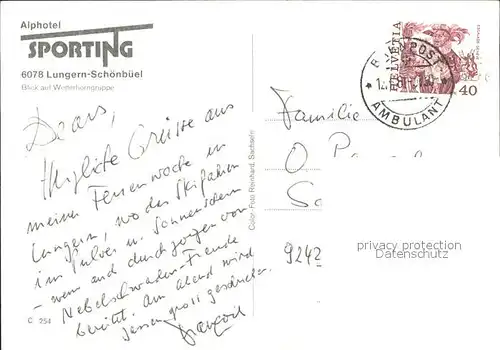 Alphotel
SPORTING
6078 Lungern-Schönbüel
Blick auf Wetterhorngruppe
Dears,
Herzliche Grüsse aus
meiner Ferienwoche in
Lungern, wo das Skifahren
im Pulver u. Sonnenschein
- wenn auch durchzogen von
Nebelschwaden - Freude
bereitet. Am Abend wird
Jassen gross geschrieben.
C 254
Color-Foto Reinhard, Sachseln
HELVETIA
40
BAHNPOST
AMBULANT
Familie
O
9242
privacy protection
Datenschutz